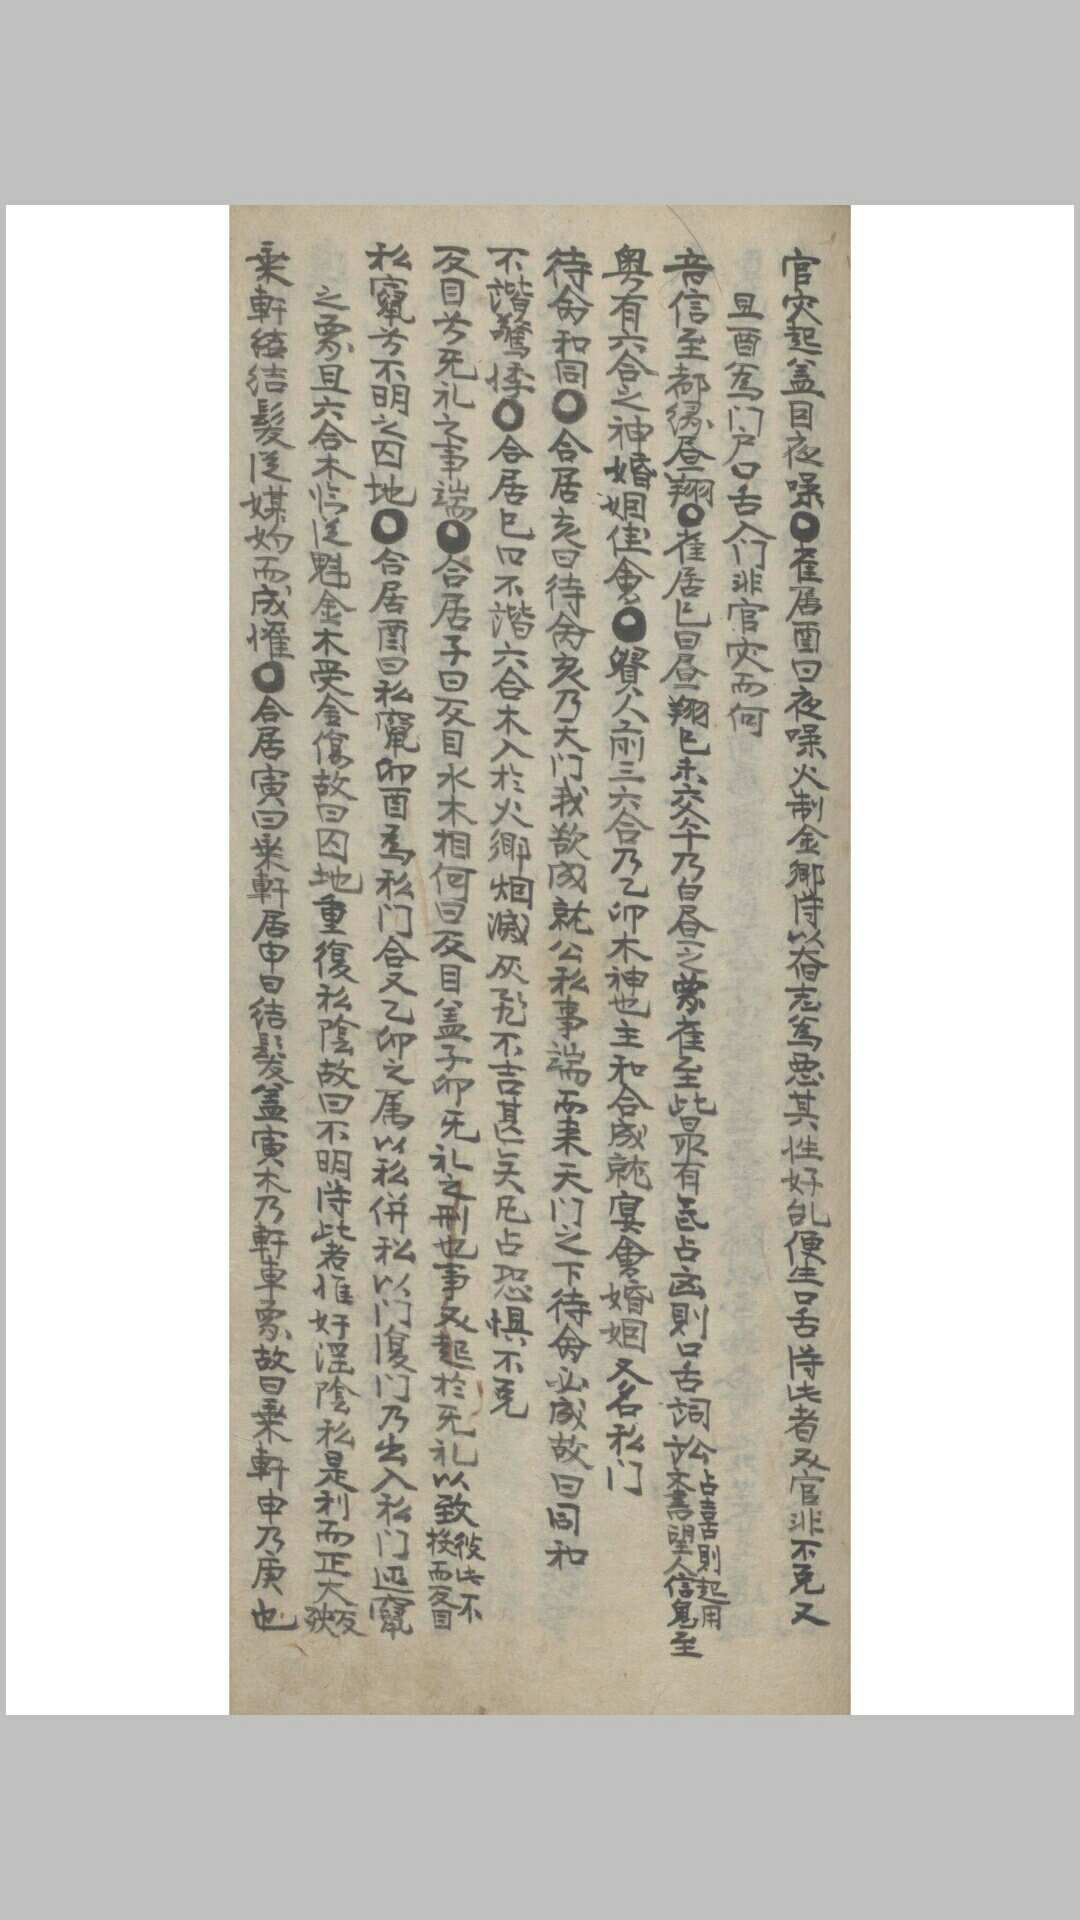 官灾起盖因夜噪○雀居酉曰夜噪火制金鄉恃以奋志為惡其性好乱便生口舌恃此者又官非不免又
且酉為门户口舌入门非官灾而何
音信至都缘昼翔○雀居巳曰昼翔巳未交午乃白昼之象雀至此最有毛占凶則口舌詞訟占喜則起用文書望人信鬼至
粤有六合之神婚姻佳會○賢人前三六合乃乙卯木神也主和合成就宴會婚姻又名私门
待命和同○合居亥曰待命亥乃天门我欲成就公私事端而来天门之下待命必成故曰同和
不諧驚悸○合居巳曰不諧六合木入於火鄉烟滅灰飛不吉甚矣凡占恐惧不免
反目兮无礼之事端○合居子曰反目水木相何曰反目盖子卯无礼之刑也事又起於无礼以致彼此不投而反目
私竄兮不明之囚地○合居酉曰私竄卯酉為私门合又乙卯之属以私併私以门復门乃出入私门迯竄
之象且六合木临从魁金木受金傷故曰囚地重復私陰故曰不明恃此者惟奸淫陰私是利而正大反殃
乘軒结髮从媒妁而成懽○合居寅曰乘軒居申曰结髮盖寅木乃軒車象故曰乘軒申乃庚也